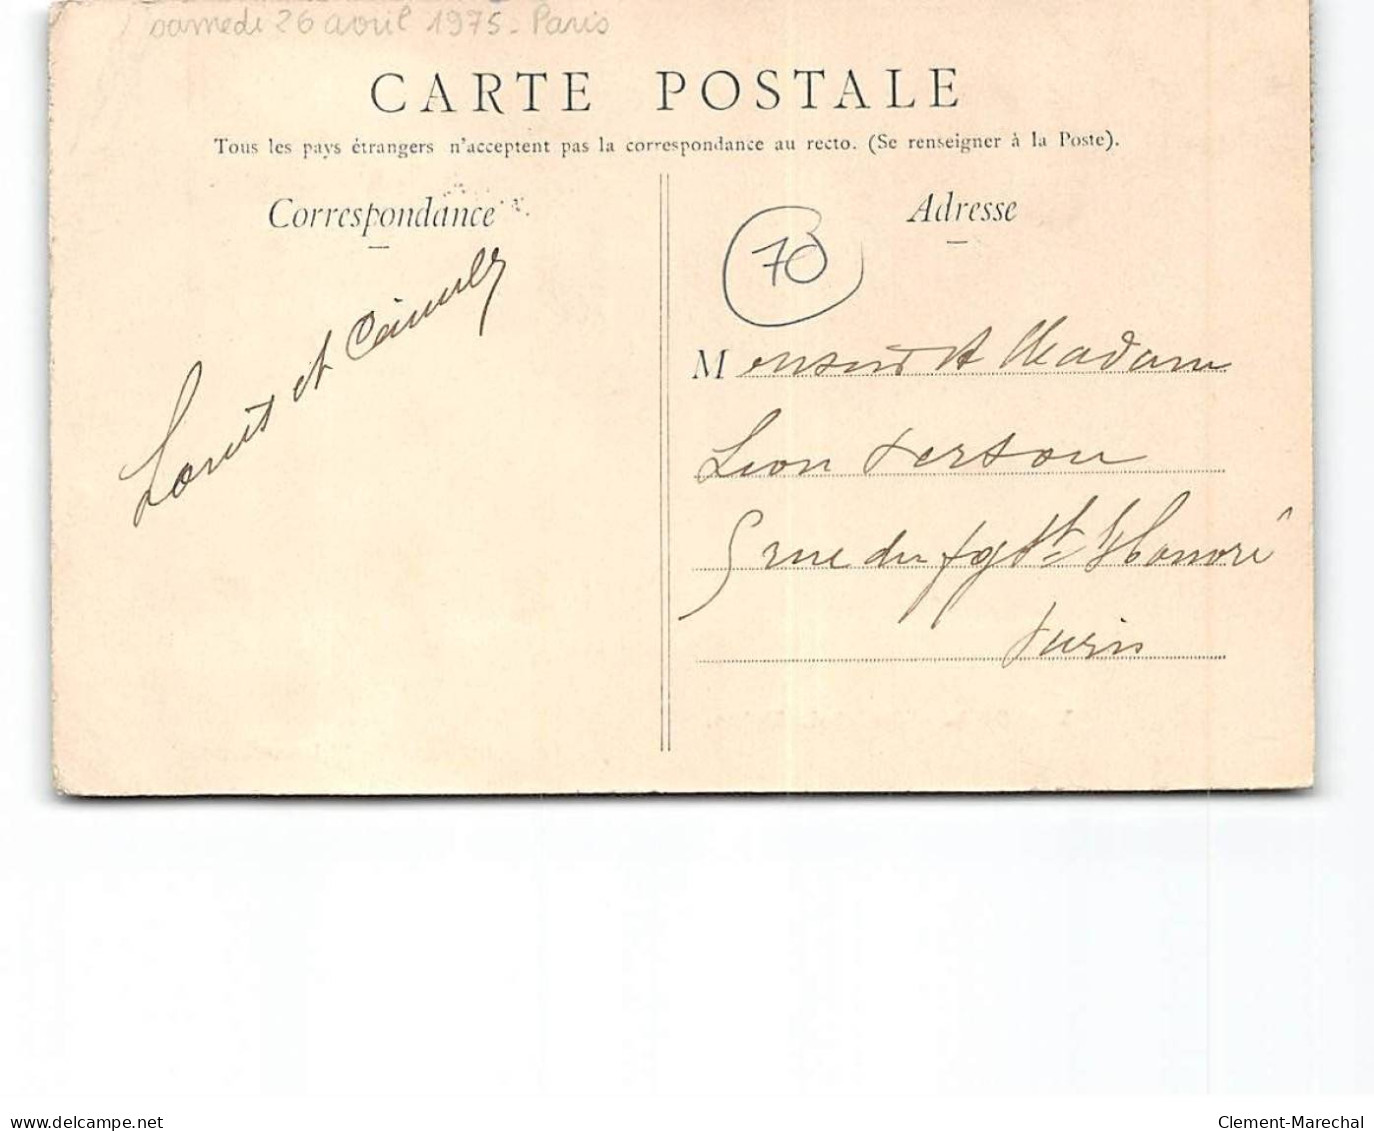 samedi 26 avril 1975 - Paris
CARTE POSTALE
Tous les pays étrangers n'acceptent pas la correspondance au recto. (Se renseigner à la Poste).
Correspondance
Adresse
70
Louis et
Monsieur et Madame
Léon
5 rue du fg St Honoré
Paris
delcampe.net
Clement-Marechal